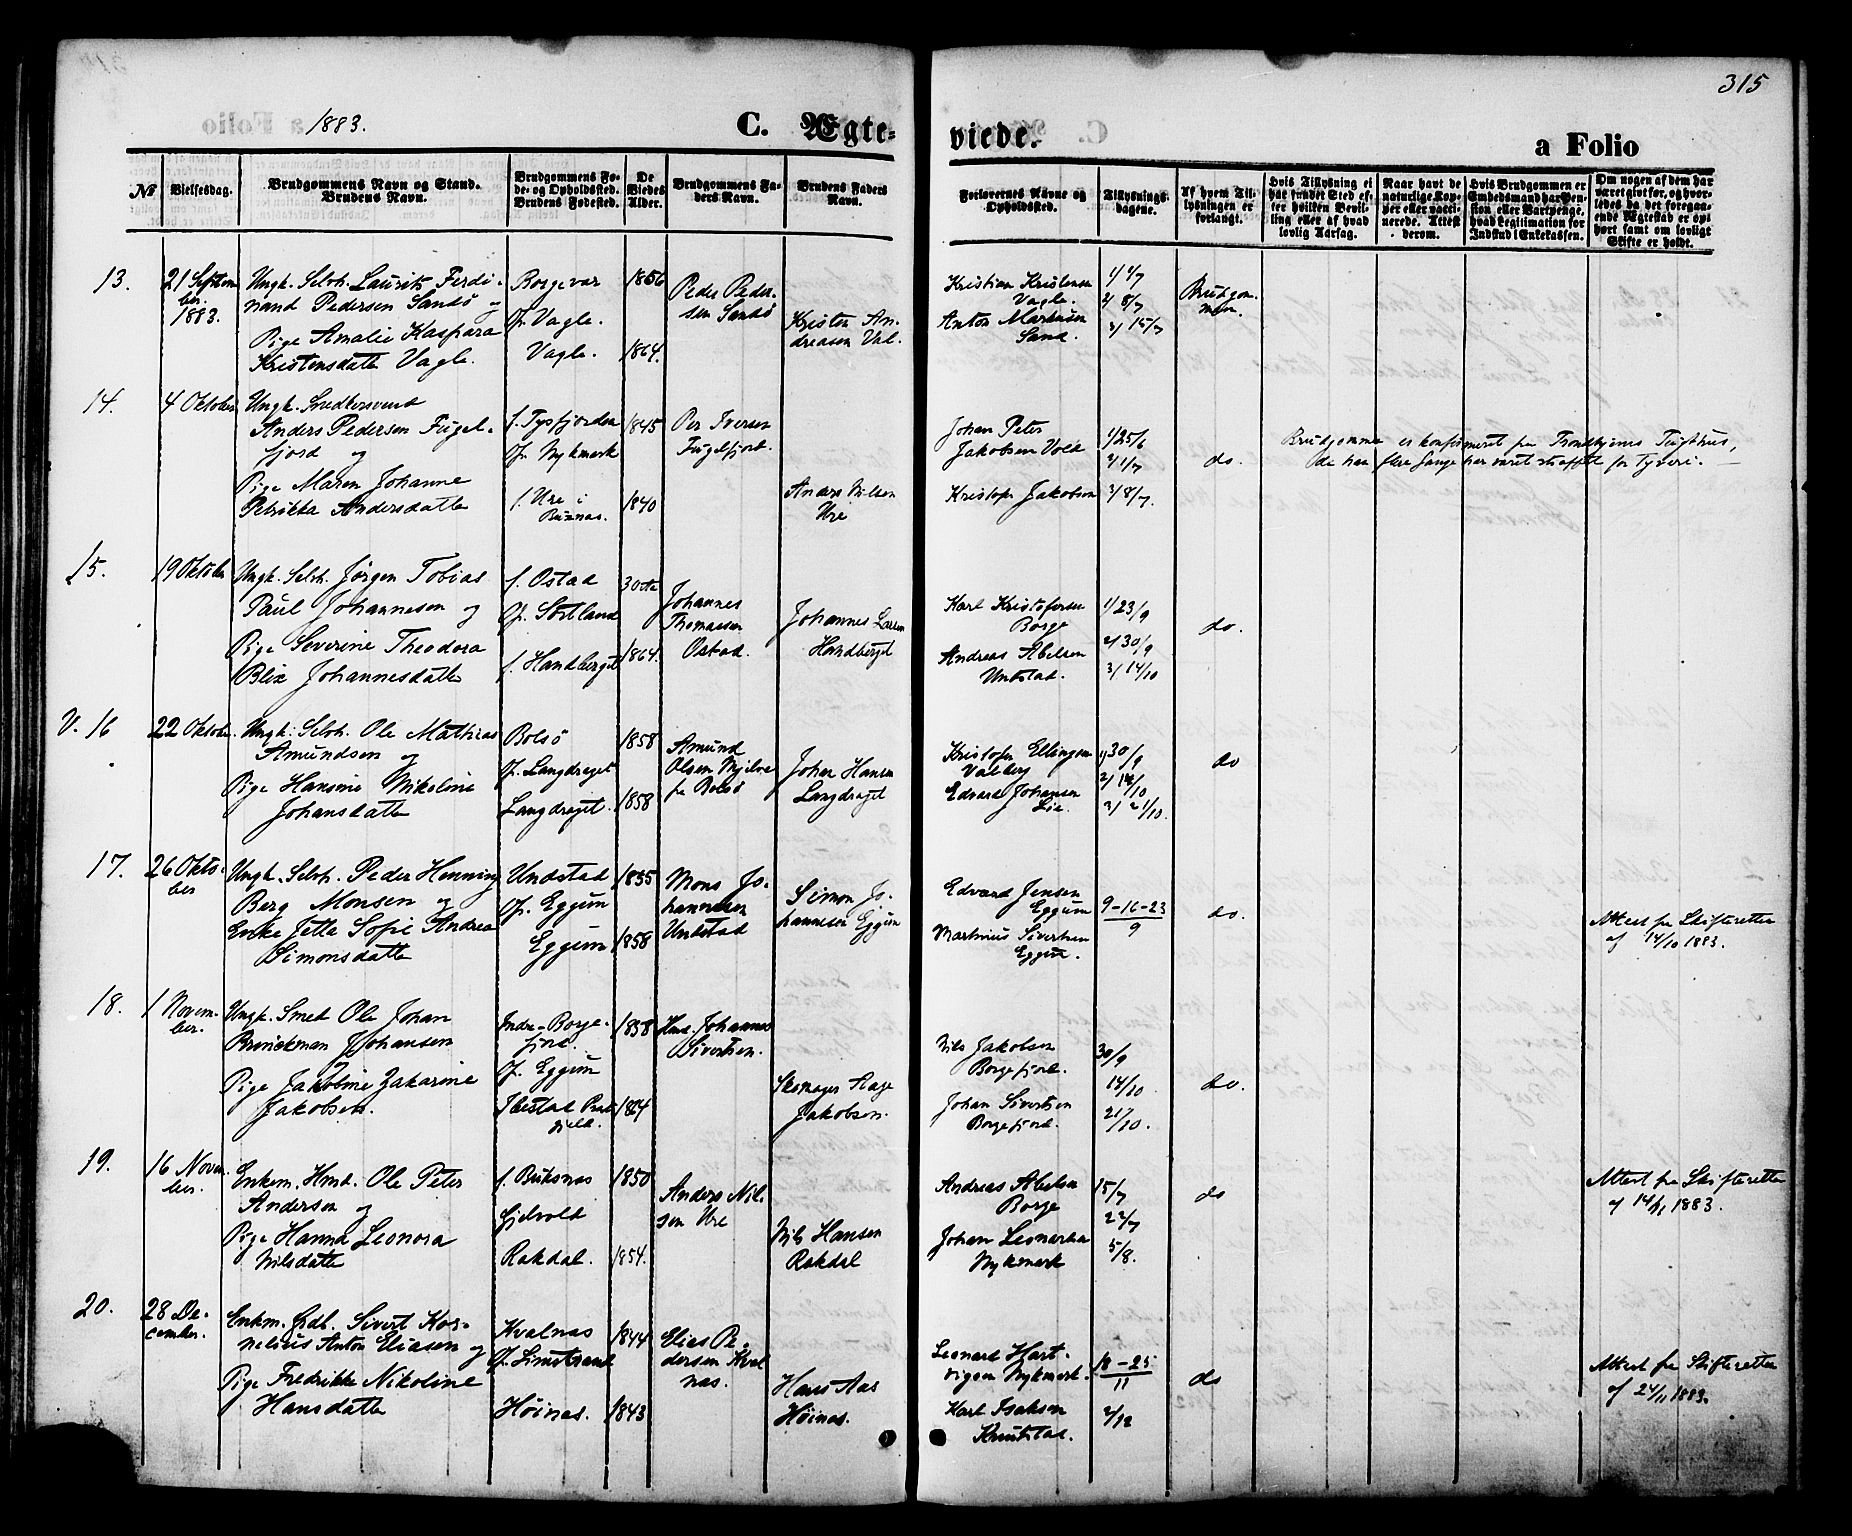 315
1883.
C. Ægte-
viede.
a Folio
№
Vielsesdag.
Brudgommens Navn og Stand.
Brudens Navn.
Brudgommens Fø-
de- og Opholdssted.
Brudens Fødested.
De
Viedes
Alder.
Brudgommens Fa-
ders Navn.
Brudens Faders
Navn.
Forlovernes Navne og
Opholdssted.
Tillysnings-
dagene.
Af hvem Til-
lysningen er
forlangt.
Hvis Tillysning ei
har fundet Sted ef-
ter hvilken Bevil-
ling eller af hvad
lovlig Aarsag.
Naar havt de
naturlige Kop-
per eller vacci-
nerede. Attest
derom.
Hvis Brudgommen er
Embedsmand har Pen-
sion eller Vartpenge,
hvad Legitimation for
Indskud i Enkekassen.
Om nogen af dem har
været gift før, og hvor-
ledes da det foregaa-
ende Ægteskab er op-
hørt samt om lovligt
Skifte er holdt.
13.
21 Septem
ber.
1883.
Ungk. Selvh. Laurits Ferdi-
nand Pedersen Sandø og
Pige Amalie Kaspara
Kristensdatte Vagle.
Borgevær
Of. Vagle.
Vagle.
1856
1864.
Peder Peder-
sen Sandø
Kristen An-
dreasen Val.
Kristian Kristensen
Vagle.
Anton Markusen
Sand.
1/ 1/7
2/ 8/7
3/ 15/7
Brudgom-
men.
14.
4 Oktober
Ungk. Snedkersvend
Anders Pedersen Fugel-
fjord og
Pige Maren Johanne
Petrikka Andersdatte
f. Tysfjorden
Of. Nykmark
f. Ure i
Buxnas.
1845
1840
Per Iversen
Fugelfjord.
Anders Nilsen
Ure
Johan Peter
Jakobsen Vold
Kristofer Jakobsen
1/25/6
2/1/7
3/8/7.
do.
Brudgomme er konfirmeret fra Trondhjems Tugthus,
da han flere Gange har været straffet for Tyveri.
15.
19 Oktober
Ungk. Selvh. Jørgen Tobias
Paul Johannesen og
Pige Severine Theodora
Blix Johannesdatte
f. Ostad
Of. Sortland
f. Handberget
30
1864.
Johannes
Thomassen
Ostad.
Johannes Larsen
Handberget
Karl Kristofersen
Borge
Andreas Abelsen
Untstad.
1/23/9
2/30/9
3/ 14/10
do.
V. 16
22 Oktober.
Ungk. Selvh. Ole Mathias
Amundsen og
Pige Hansine Nikoline
Johansdatte
Bolsø
Of. Langdraget
Langdraget.
1858
1858
Amund
Olsen
fr Bolsø
Johan Hansen
Langdraget
Kristofer Ellingsen
Valberg
Edvard Johansen
Lie.
1/30/9
2/ 14/10
3/ 21/10.
do
17.
26 Okto-
ber
Ungk. Selvh. Peder Henning
Berg Monsen og
Enke Jette Sofie Andrea
Simonsdatte
Undstad
Of. Eggum
Eggum
1855
1858
Mons Jo-
hannesen
Untstad
Simon Jo-
hannesen Eggum
Edvard Jensen
Eggum
Martinius Sivertsen
Eggum.
9-16-23
9
do.
Attest fra Skifteretten
af 14/10 1883.
18.
1 Novem-
ber.
Ungk. Smed Ole Johan
Brinckman Johansen
og
Pige Jakobine Zakarine
Jakobsen.
Indre-Borge-
fjord.
Of. Eggum
Ibestad Præste
gjeld.
1858
1864
Johannes
Sivertsen.
Skomager Aage
Jakobsen.
Nils Jakobsen
Borgefjord.
Johan Sivertsen
Borgefjord.
30/9
14/10
21/10.
do.
19.
16 Novem
ber.
Enkem. Hmd. Ole Peter
Andersen og
Pige Hanna Leonora
Nilsdatte
f. Buksnas
Gjelvold
Rakdal.
1850
1854.
Anders Nil-
sen Ure
Nils Hansen
Rakdal
Andreas Abelsen
Borge
Johan Leonartsen
Nykmark
15/7
22/7
5/8.
do
Attest fra Skifteretten
af 14/11 1883.
20.
28 De-
cember.
Enkm. Gdb. Sivert Kor-
nelius Anton Eliasen og
Pige Fredrikke Nikoline
Hansdatte
Kvalnas
Of. Limstrand
Høinas.
1844
1843
Elias Pe-
dersen Kval
nas.
Hans Aas
Høinas.
Leonard Hart-
vigsen Nykmark.
Karl Isaksen
Knutstad.
18-25
11
2/12
do
Attest fra Skifteretten
af 24/11 1883.